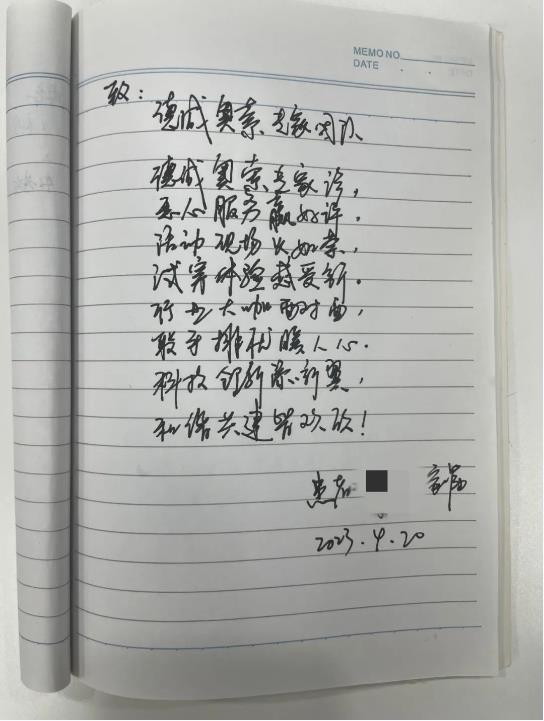 MEMO NO.
DATE
致：
德诚奥索专家团队
德诚奥索专家诊，
名人服务赢好评。
活动现场火如荼，
试穿体验感受新。
行业大咖面对面，
敢于排忧暖人心。
科技创新添新翼，
和谐共建皆欢欣！
患者 家属
2023.4.20